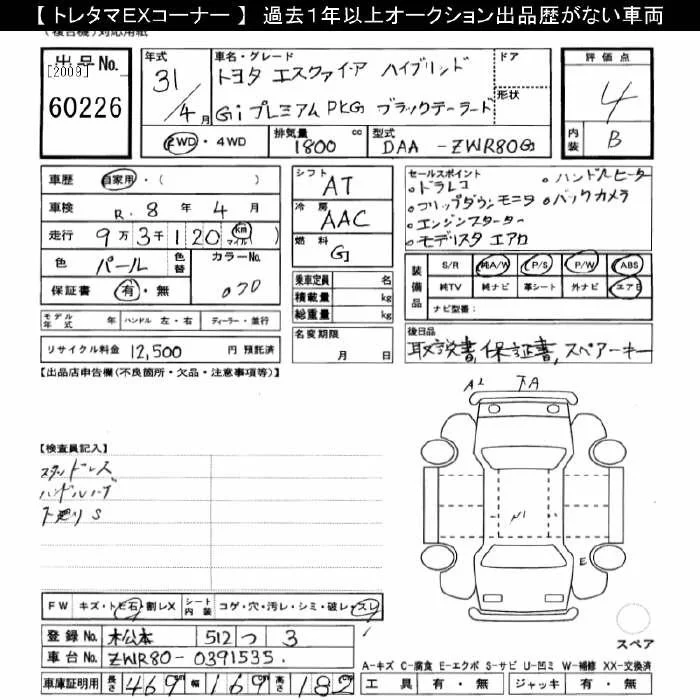 【 トレタマEXコーナー 】 過去1年以上オークション出品歴がない車両
(複合機)対応用紙
出品No.
[2009]
60226
年式
31/4月
車名・グレード
トヨタ エスクァイア ハイブリッド
Gi プレミアムPKG ブラックテーラード
ドア
形状
2WD・4WD
排気量
1800 cc
型式
DAA -ZWR80G
評価点
4
内装
B
車歴 自家用・( )
車検 R. 8 年 4 月
走行 9万3千120 km マイル
色 パール 色替
カラーNo. 070
保証書 有・無
シフト AT
冷房 AAC
燃料 G
乗車定員 名
積載量 kg
総重量 kg
セールスポイント
○ドラレコ ○ハンドルヒーター
○フリップダウンモニタ ○バックカメラ
○エンジンスターター
○モデリスタ エアロ
装備品
S/R 純A/W P/S P/W ABS
純TV 純ナビ 革シート 外ナビ エアB
ナビ型番:
モデル年式 年 ハンドル 左・右 ディーラー・並行
リサイクル料金 12,500 円 預託済
名変期限
月 日
後日品
取説書,保証書,スペアーキー
【出品店申告欄(不良箇所・欠品・注意事項等)】
A1 下A
【検査員記入】
スタッドレス
下廻りS
E
FW キズ・トビ石・割レX
シート内装 コゲ・穴・汚レ・シミ・破レ・スレ
登録No. 松本 512 つ 3
車台No. ZWR80-0391535.
車庫証明用 長さ 469 幅 169 高さ 182
スペア
A-キズ C-腐食 E-エクボ S-サビ U-凹ミ W-補修 XX-交換済
工具 有・無 ジャッキ 有・無